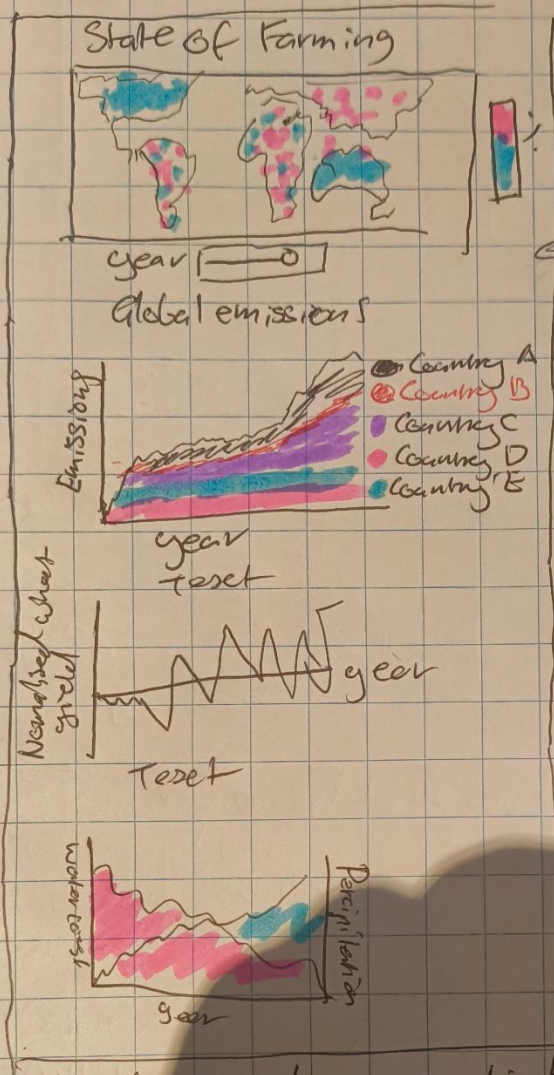 State of Farming
%
year
Global emissions
Emissions
Country A
Country B
Country C
Country D
Country E
year
Teset
Normalised wheat
yield
year
Teset
Percipitation
year